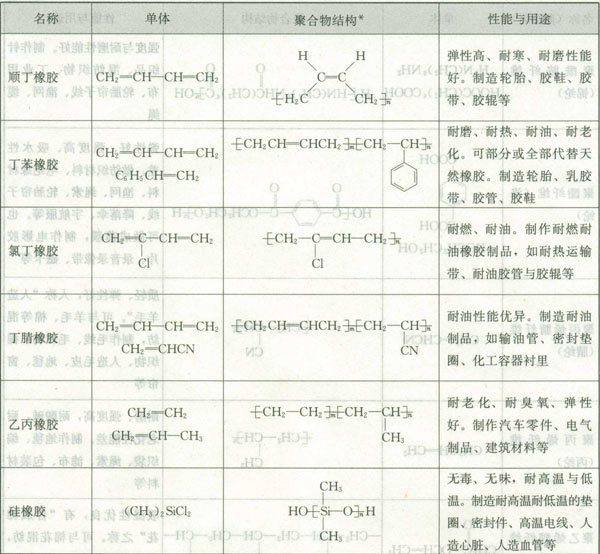 名称 单体 聚合物结构* 性能与用途
顺丁橡胶
CH₂═CH—CH═CH₂
H H
C═C
⁅H₂C CH₂⁆ₙ
弹性高、耐寒、耐磨性能
好。制造轮胎、胶鞋、胶
带、胶辊等
丁苯橡胶
CH₂═CH—CH═CH₂
C₆H₅CH═CH₂
⁅CH₂CH═CHCH₂⁆ₙ⁅CH₂—CH⁆ₙ
耐磨、耐热、耐油、耐老
化。可部分或全部代替天
然橡胶。制造轮胎、乳胶
带、胶管、胶鞋
氯丁橡胶
CH₂═C—CH═CH₂
Cl
⁅CH₂—C═CH—CH₂⁆ₙ
Cl
耐燃、耐油。制作耐燃耐
油橡胶制品，如耐热运输
带、耐油胶管与胶辊等
丁腈橡胶
CH₂═CH—CH═CH₂
CH₂═CHCN
⁅CH₂—CH═CHCH₂⁆ₙ⁅CH₂—CH⁆ₙ
CN
耐油性能优异。制造耐油
制品，如输油管、密封垫
圈、化工容器衬里
乙丙橡胶
CH₂═CH₂
CH₂═CH—CH₃
⁅CH₂—CH₂⁆ₙ⁅CH₂—CH⁆ₙ
CH₃
耐老化、耐臭氧、弹性
好。制作汽车零件、电气
制品、建筑材料等
硅橡胶
(CH₃)₂SiCl₂
CH₃
HO⁅Si—O⁆ₙH
CH₃
无毒、无味，耐高温与低
温。制造耐高温耐低温的垫
圈、密封件、高温电线、人
造心脏、人造血管等